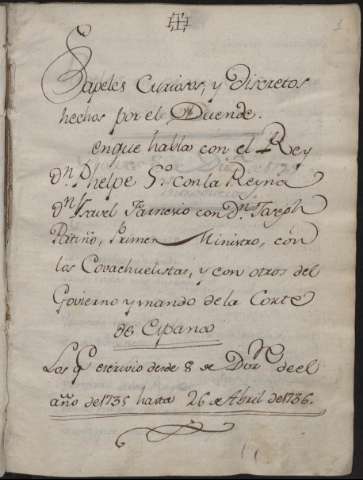 3
Papeles Curiosos, y discretos
hechos por el Duende.
enque habla con el Rey
Dn. Phelpe 5º. con la Reyna
Dn. Ysavel Farnesio con Dn. Joseph
Patiño, Primer Ministro, con
los Covachuelistas, y con otros del
Govierno y mando de la Corte
de España
Los q escrivio desde 8 de Dizre de el
año de 1735 hasta 26 de Abril de 1736.